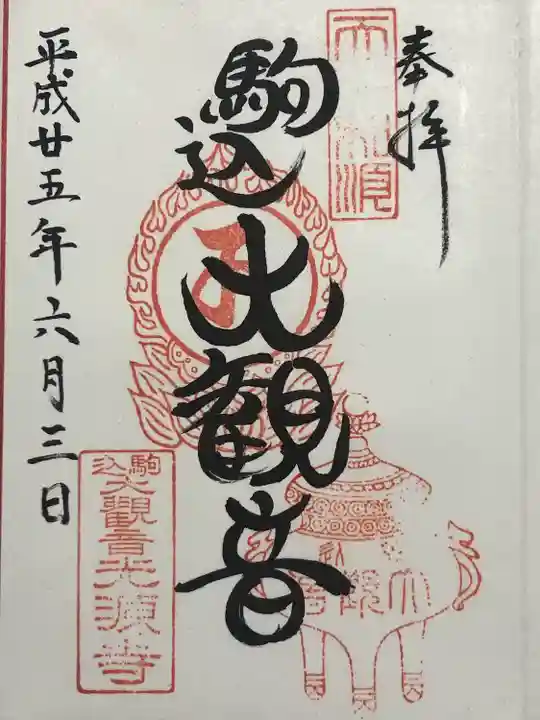 奉拝
駒込大観音
平成廿五年六月三日
駒込
大觀音光源寺